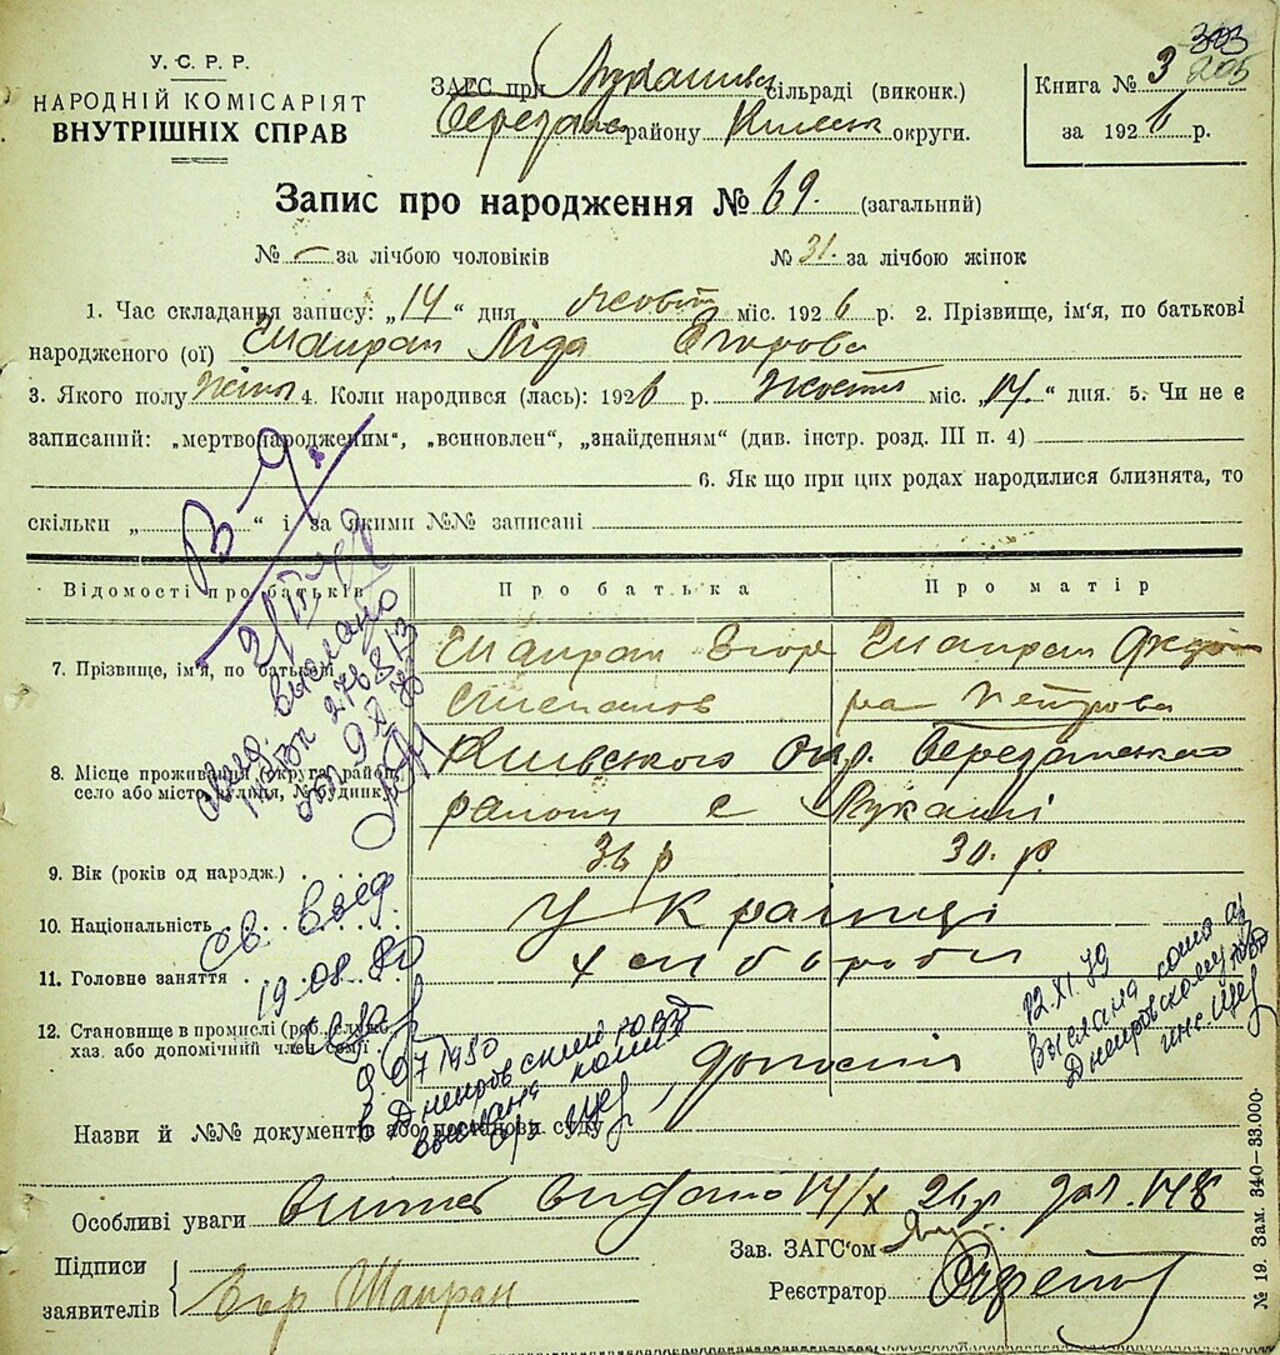 У. С. Р. Р.
НАРОДНІЙ КОМІСАРІЯТ
ВНУТРІШНІХ СПРАВ
ЗАГС при Лукашивс. сільраді (виконк.)
Березанс району Київськ округи.
Книга № 3
за 1926 р.
Запис про народження № 69. (загальний)
№ — за лічбою чоловіків № 31. за лічбою жінок
1. Час складання запису: „14“ дня жовт міс. 1926 р. 2. Прізвище, ім'я, по батькові
народженого (ої) Шапран Ліда Єгорова
3. Якого полу 4. Коли народився (лась): 1926 р. жовтн міс. „14.“ дня. 5. Чи не є
записаний: „мертвонародженим“, „всиновлен“, „знайденням“ (див. інстр. розд. III п. 4)
6. Як що при цих родах народилися близнята, то
скільки „ “ і за якими №№ записані
Відомості про батьків Про батька Про матір
7. Прізвище, ім'я, по батькові Шапран Єгор Шапран
Степанов Петрова
8. Місце проживання (округа, район, Київського Окр. Березанського
село або місто, вулиця, № будинку) району с Лукаші
9. Вік (років од народж.) 36 р 30. р.
10. Національність Українці
11. Головне заняття хлібороби
12. Становище в промислі (роб., служб.,
хаз. або допомічний член семії
выслано
278813
Св. выд.
19.08.80
9.07 1980
в Днепровский
выслана копия
12.XI.79
Выслана копия
Днепровскому
Назви й №№ документів або постанови суду
Особливі уваги Витяг видано 14/X 26 р. 148
Підписи
заявителів Шапран
Зав. ЗАГС'ом
Реєстратор
№ 19. Зам. 340—33.000.